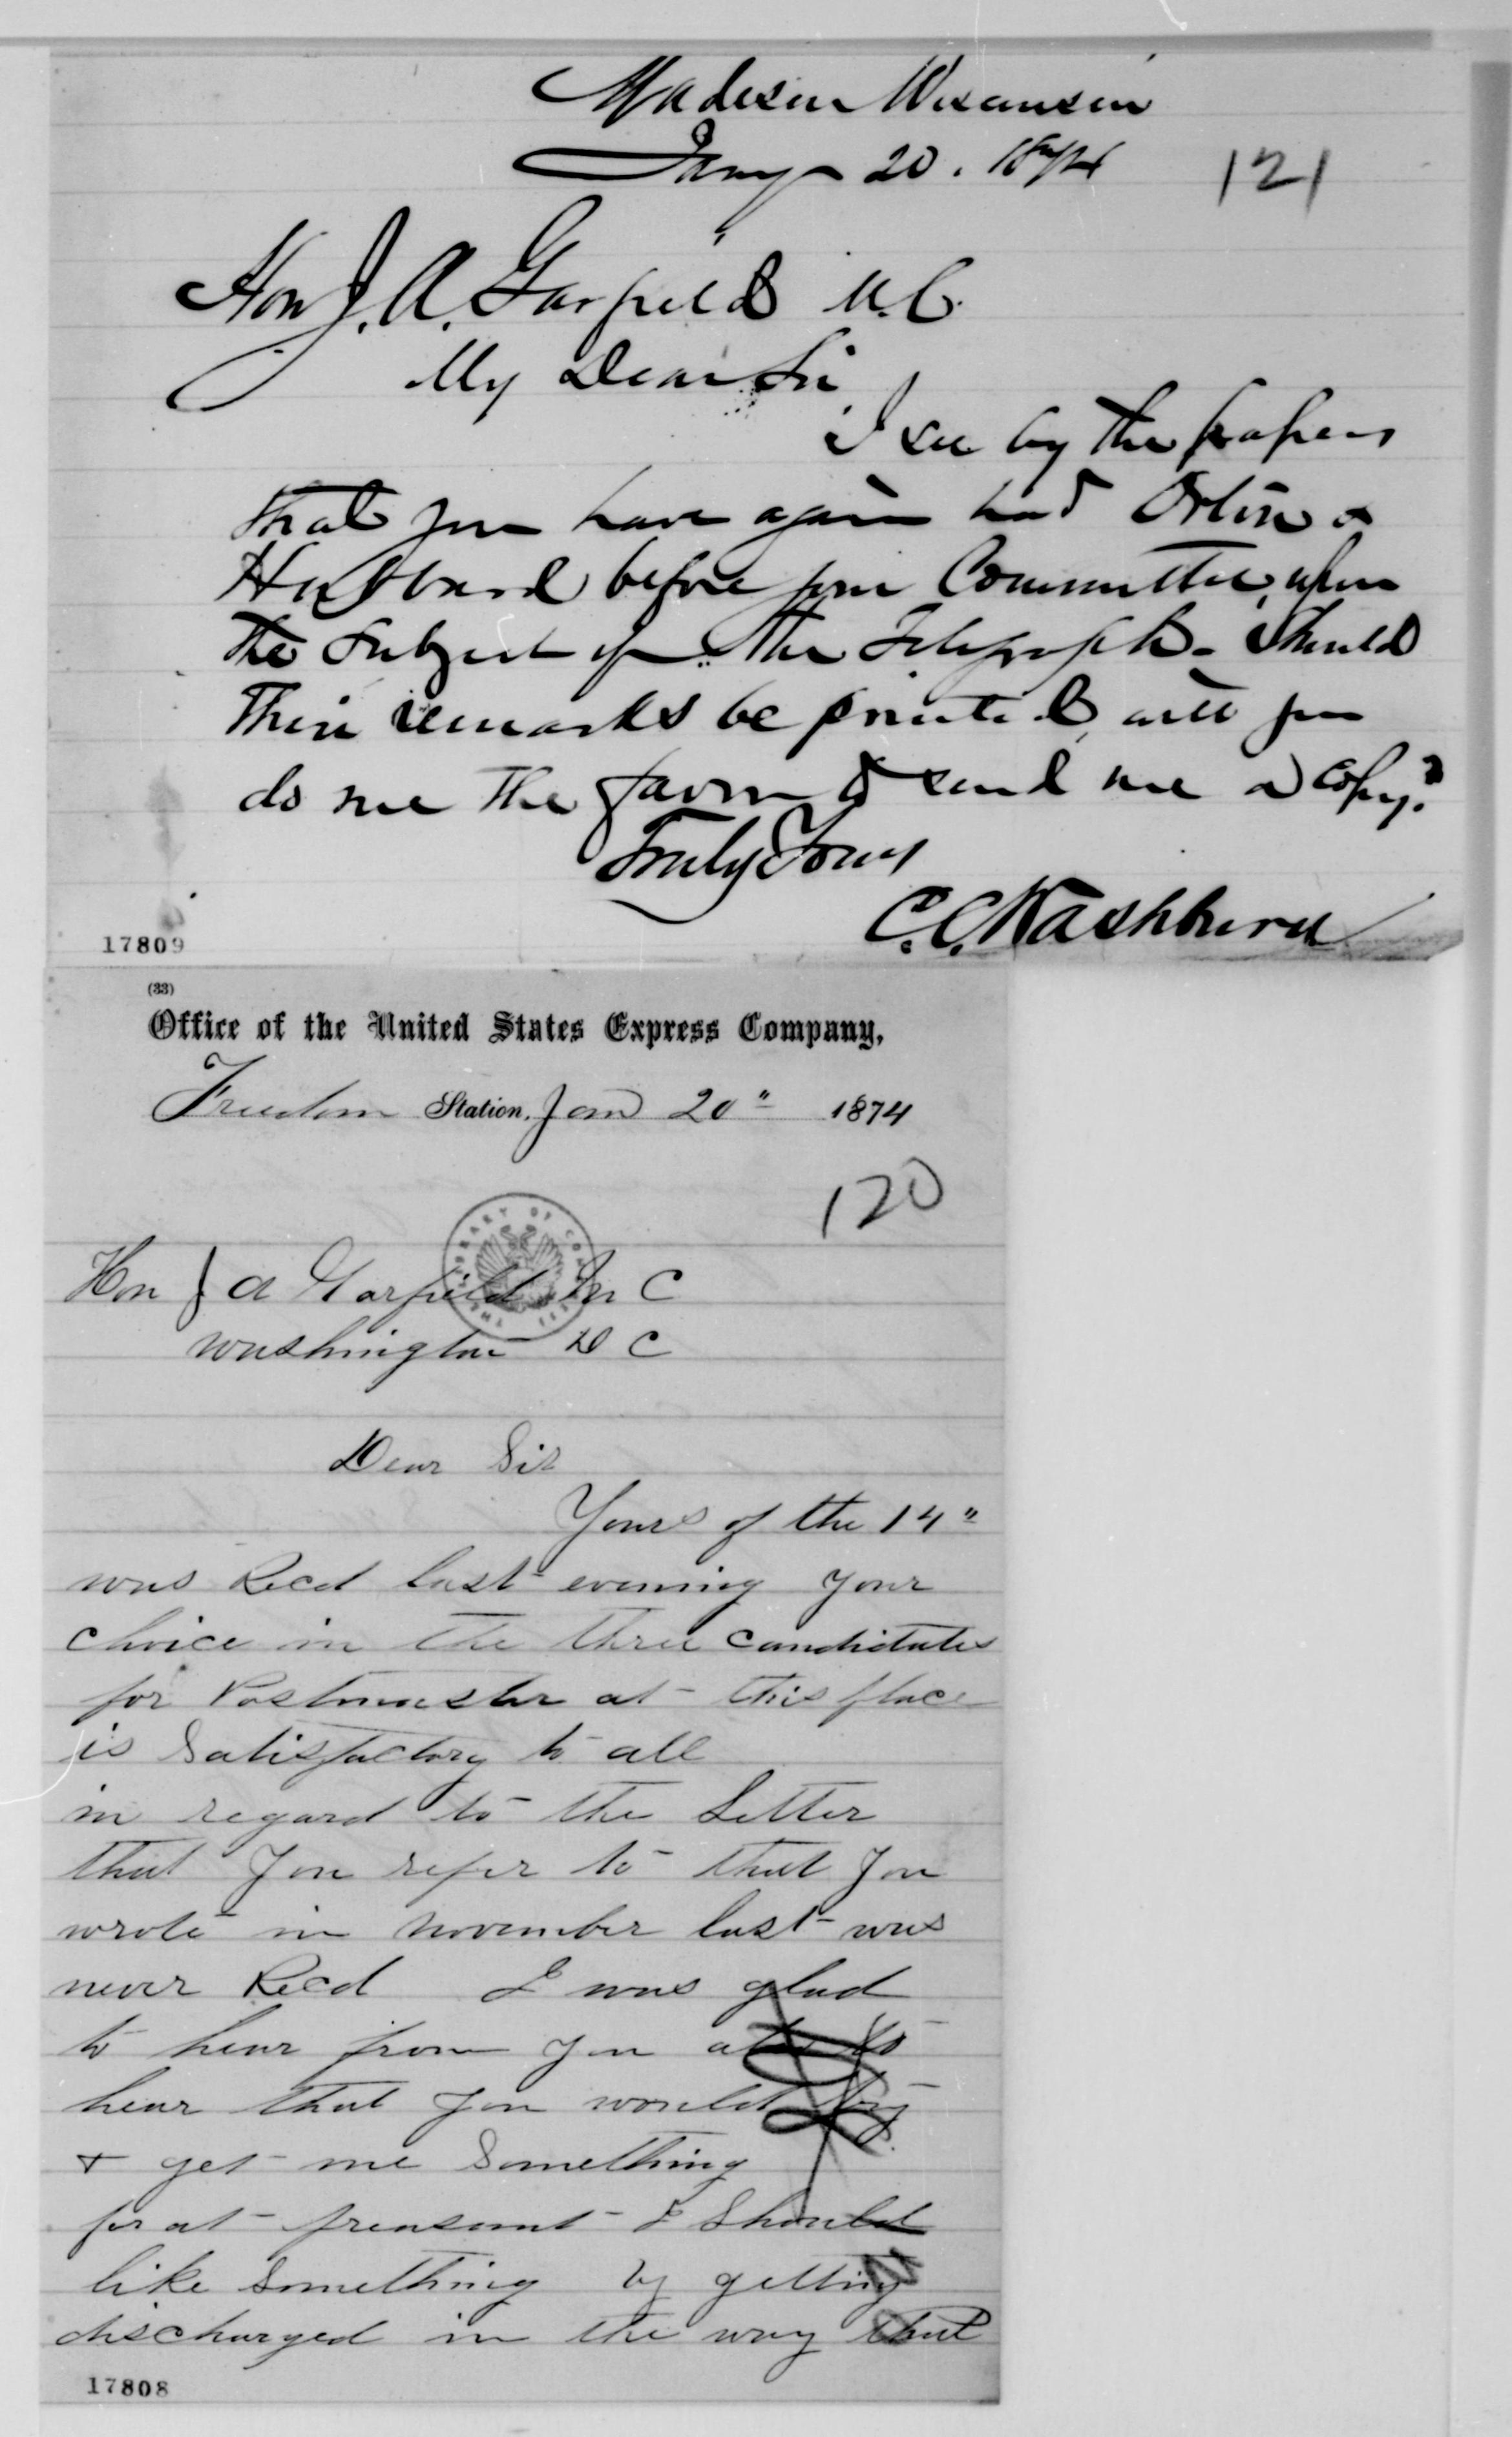 Madison Wisconsin
Jany 20. 1874
121
Hon J. A. Garfield M.C.
My Dear Sir
I see by the papers
that you have again had Orton &
Hubbard before your Committee, upon
the subject of the Telegraph. Should
their remarks be printed, will you
do me the favor to send me a copy?
Truly Yours
C. C. Washburn
17809
(33)
Office of the United States Express Company,
Freedom Station, Jan 20" 1874
120
Hon J A Garfield M C
Washington D C
Dear Sir
Yours of the 14"
was Recd last evening your
choice in the three candidates
for Postmaster at this place
is Satisfactory to all
in regard to the Letter
that you refer to that you
wrote in November last was
never Recd I was glad
to hear from you also to
hear that you would try
& get me Something
for at preasant I Should
like something by getting
discharged in the way that
17808